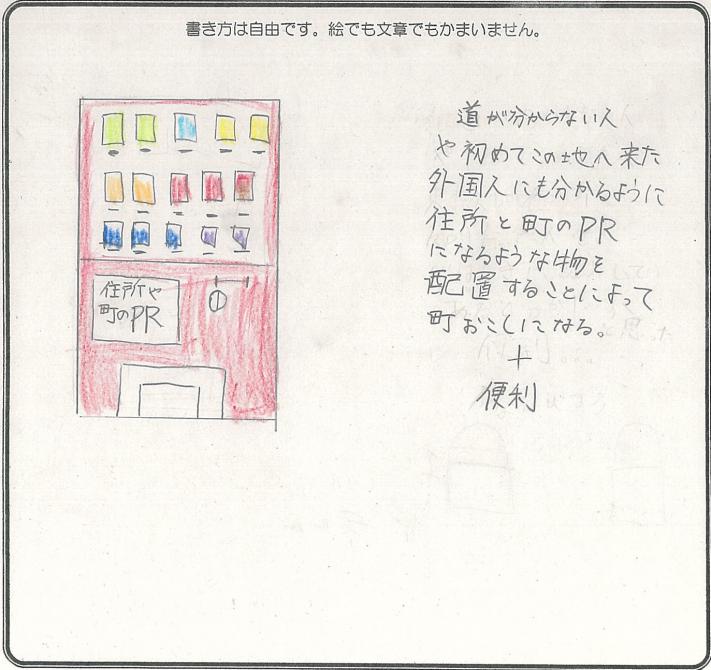 書き方は自由です。絵でも文章でもかまいません。
住所や
町のPR
道が分からない人
や初めてこの地へ来た
外国人にも分かるように
住所と町のPR
になるような物を
配置することによって
町おこしになる。
+
便利